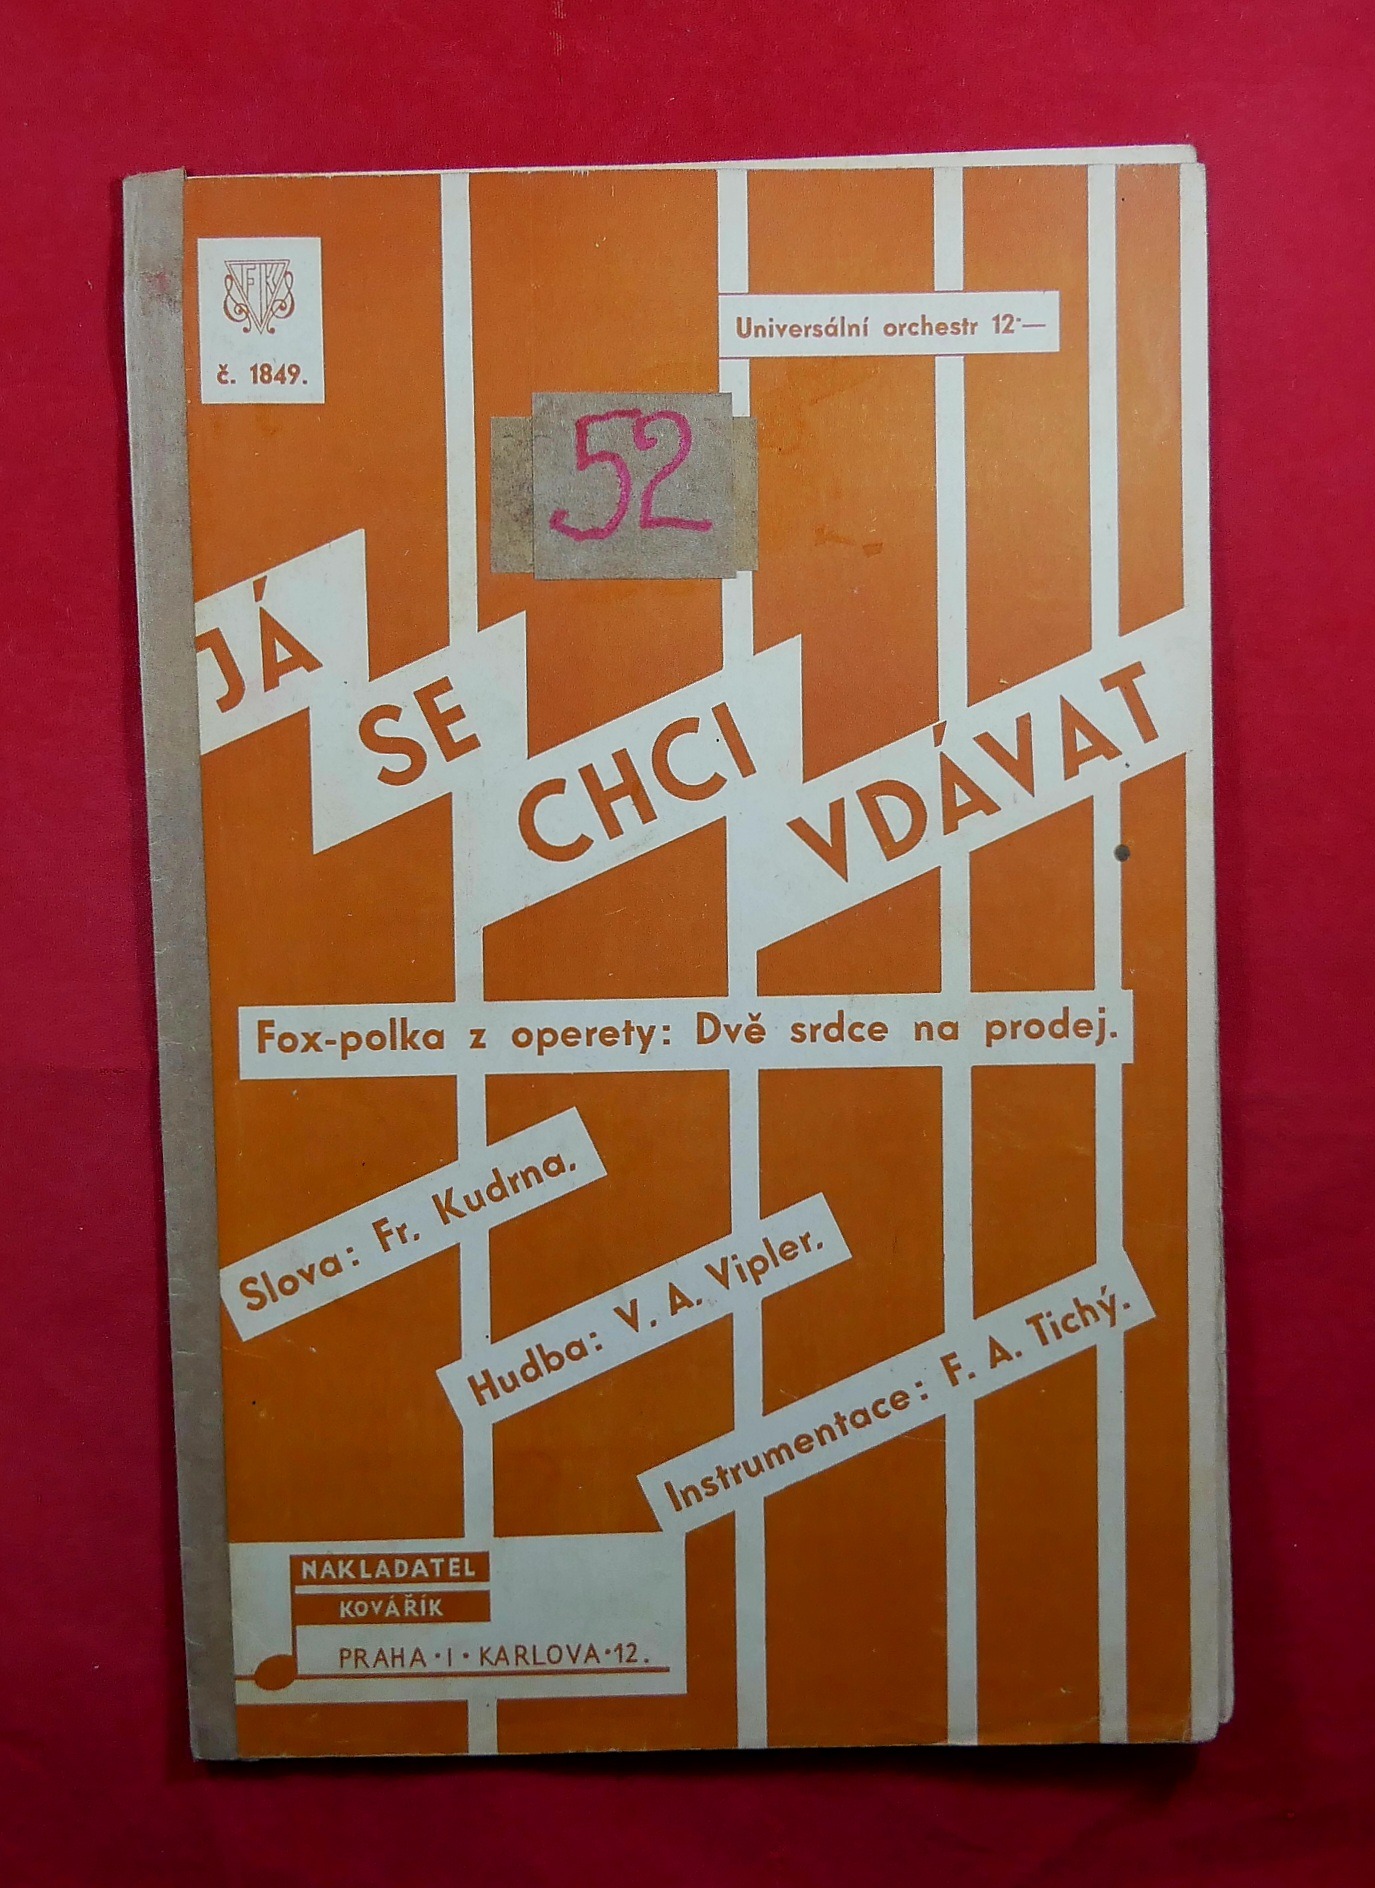 FK
č. 1849.
Universální orchestr 12·—
52
JÁ SE CHCI VDÁVAT
Fox-polka z operety: Dvě srdce na prodej.
Slova: Fr. Kudrna.
Hudba: V. A. Vipler.
Instrumentace: F. A. Tichý.
NAKLADATEL
KOVÁŘÍK
PRAHA · I · KARLOVA · 12.